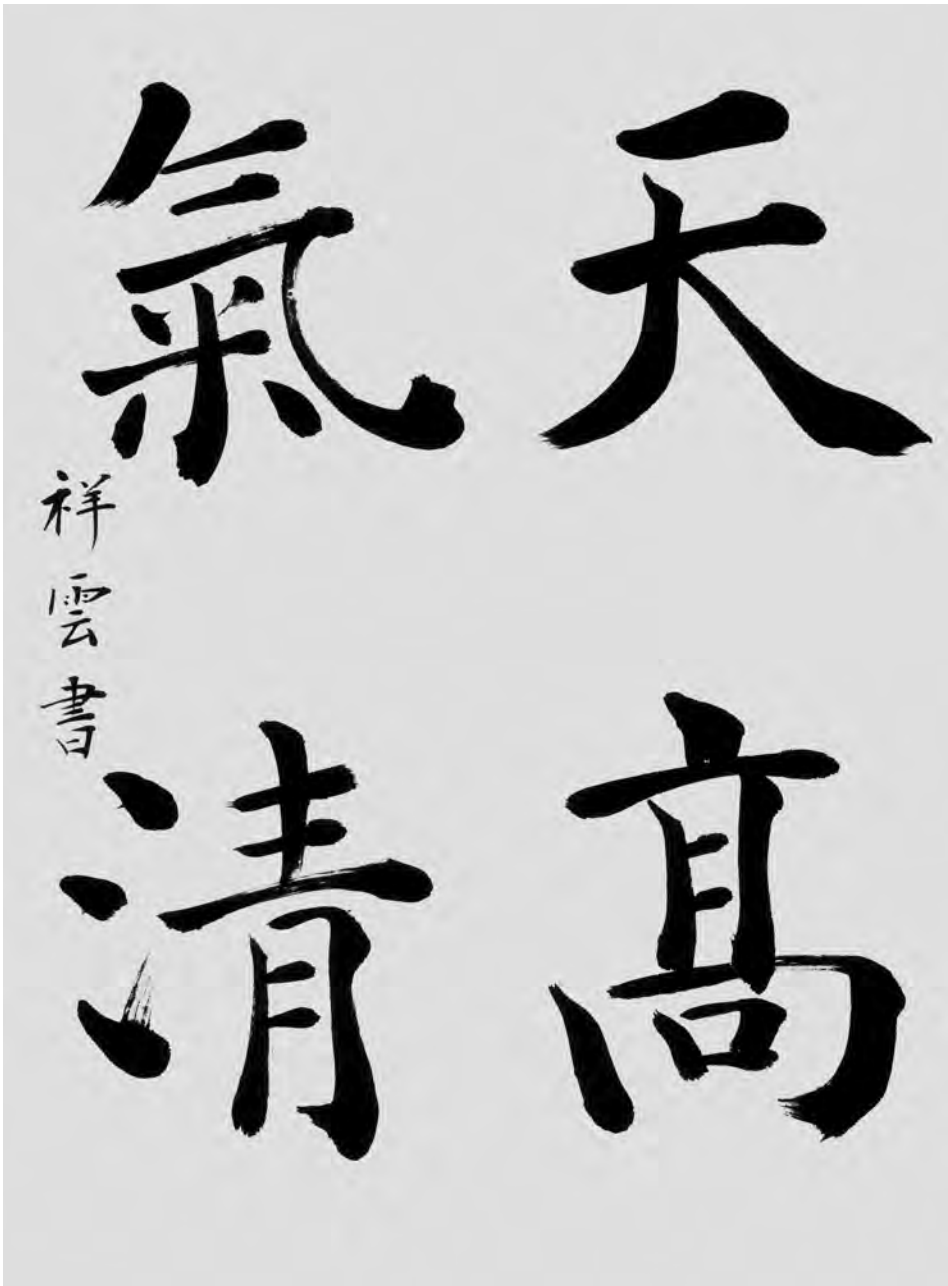 天髙
氣清
祥雲書